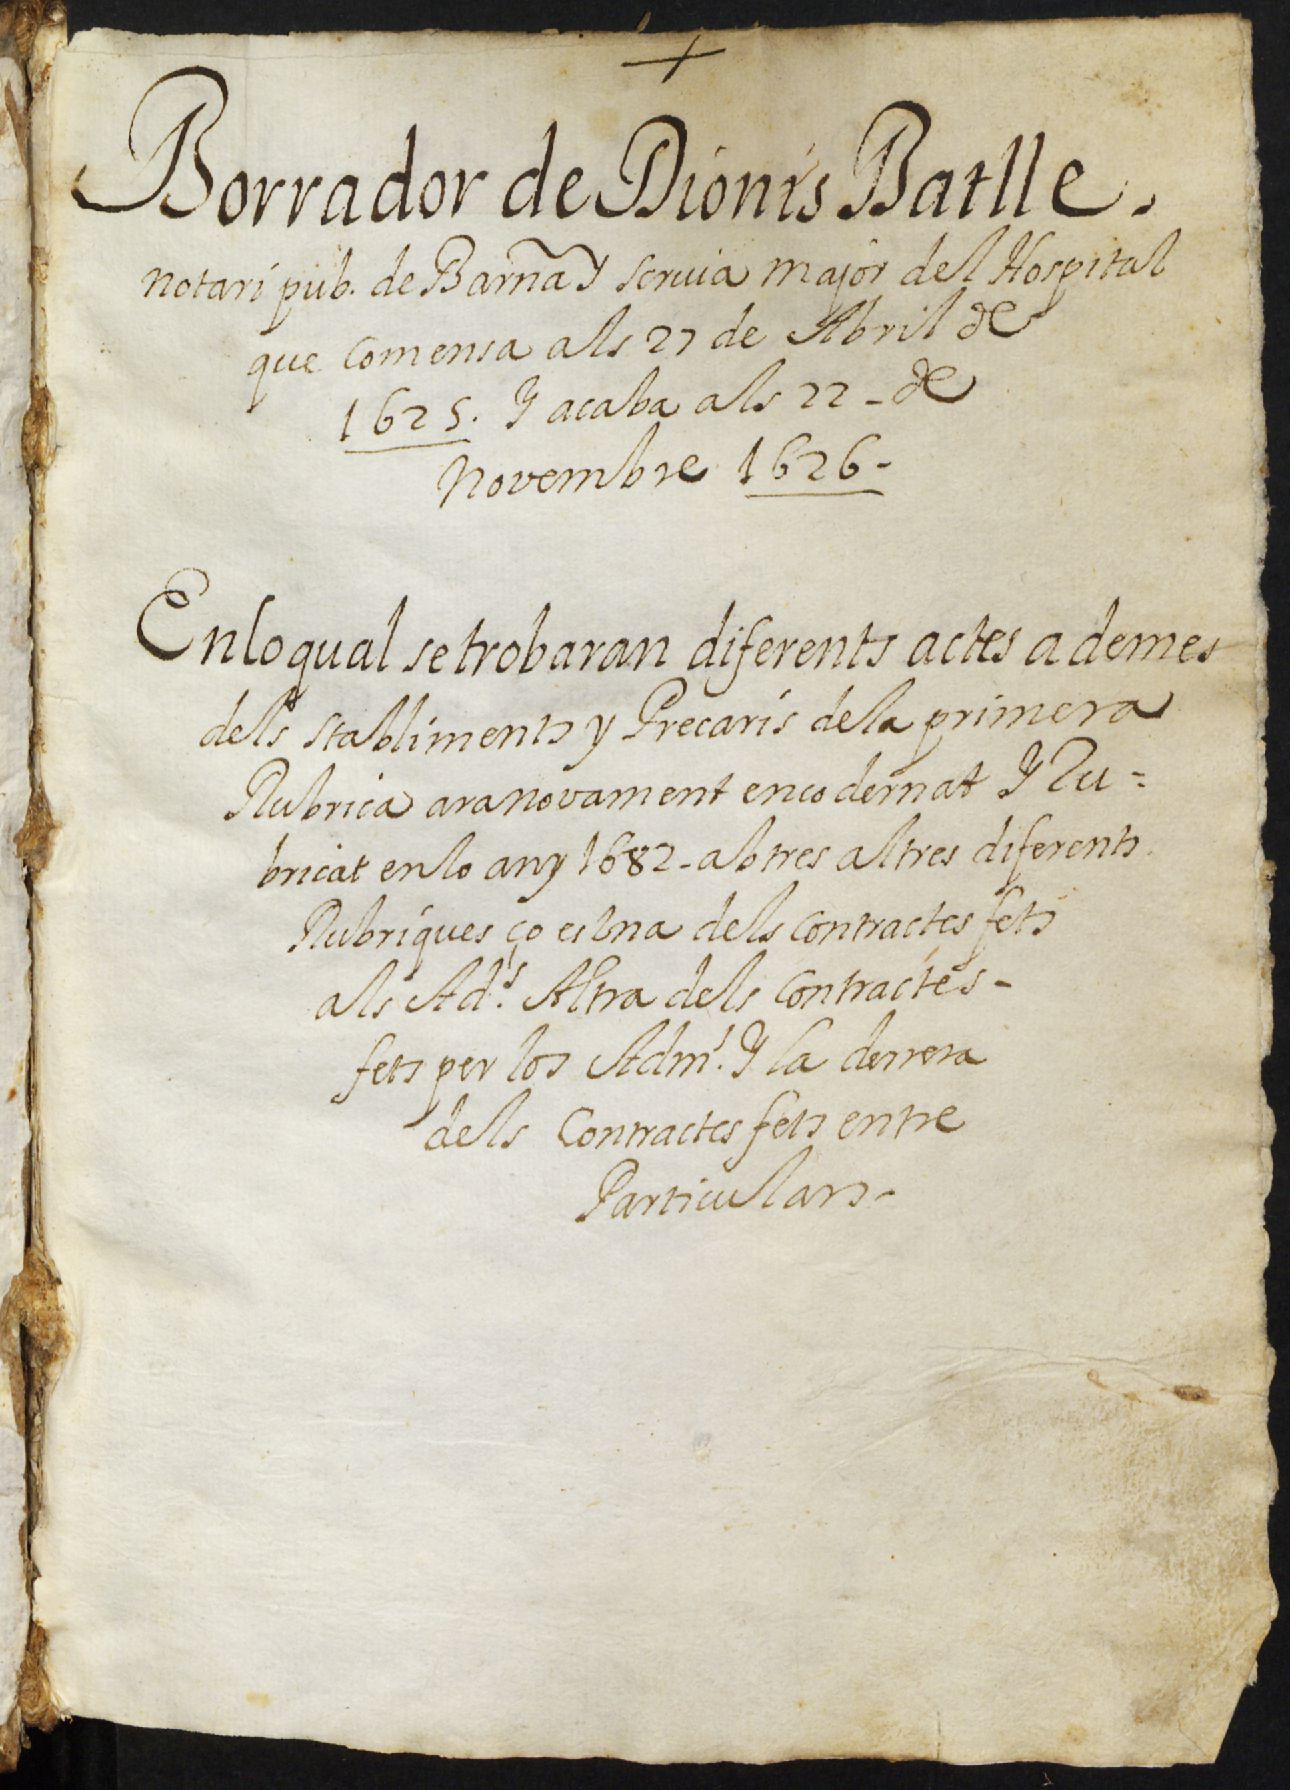 Borrador de Dionis Batlle.
notari pub. de Barña Y scruia major del Hospital
que Comensa als 27 de Abril de
1625. Y acaba als 22 - de
Novembre 1626 -
En lo qual se trobaran diferents actes a demes
dels stabliments y Precaris de la primera
Rubrica ara novament encodernat Y Ru=
bricat en lo any 1682 - ab tres altres diferents
Rubriques ço es Una dels Contractes fets
als Ad.s Altra dels Contractes -
fets per los Adm.s Y la derrera
dels Contractes fets entre
Particulars -